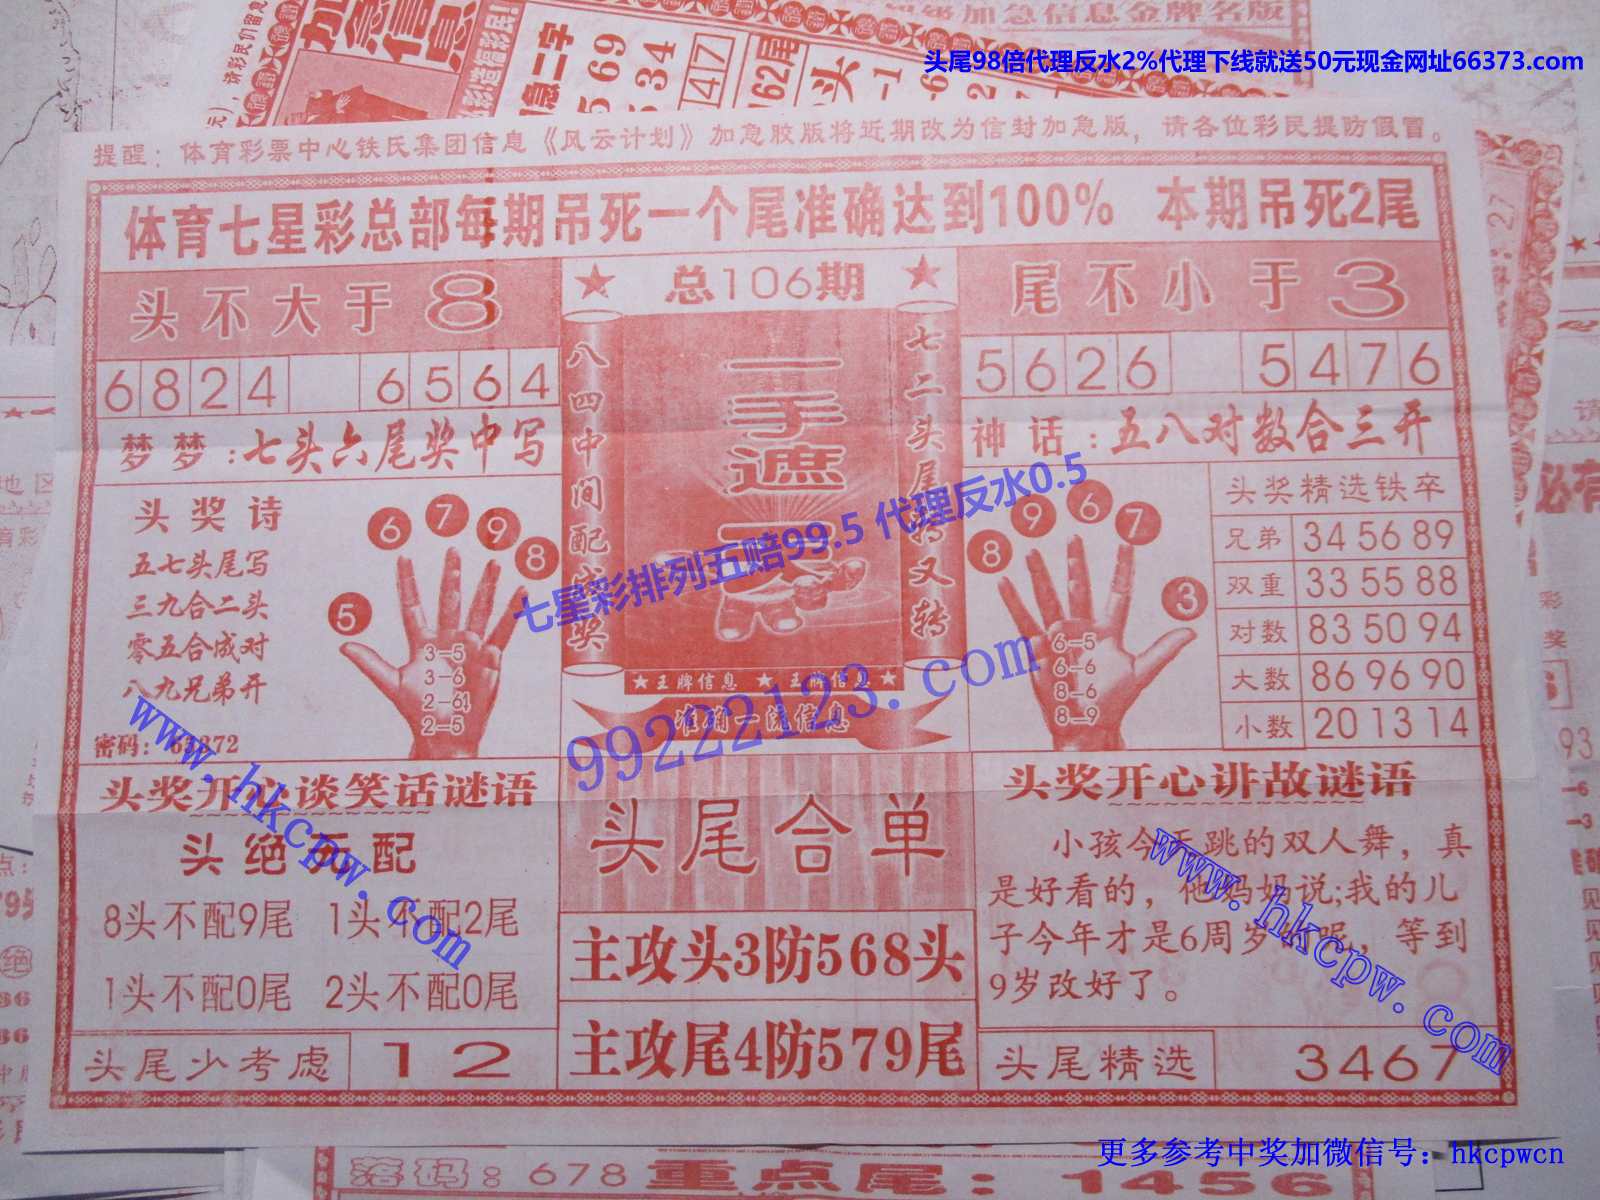 加急信息金牌名版
头尾98倍代理反水2%代理下线就送50元现金网址66373.com
加急信息
急二字
569
534
47
162尾
提醒：体育彩票中心铁氏集团信息《风云计划》加急胶版将近期改为信封加急版，请各位彩民提防假冒。
体育七星彩总部每期吊死一个尾准确达到100% 本期吊死2尾
头不大于8
★ 总106期 ★
尾不小于3
6824 6564
5626 5476
八四中间配成奖
一手遮天
七二头尾转又转
梦梦：七头六尾奖中写
神话：五八对数合三开
头奖诗
五七头尾写
三九合二头
零五合成对
八九兄弟开
5 6 7 9 8
3-5
3-6
2-6
2-5
七星彩排列五赔99.5 代理反水0.5
8 9 6 7 3
6-5
6-6
8-6
8-9
头奖精选铁卒
兄弟 34 56 89
双重 33 55 88
对数 83 50 94
大数 86 96 90
小数 20 13 14
★王牌信息 ★王牌信息★
准确一流信息
99222123.com
www.hkcpw.com
头奖开心谈笑话谜语
头绝死配
8头不配9尾 1头不配2尾
1头不配0尾 2头不配0尾
头尾少考虑 12
头尾合单
主攻头3防568头
主攻尾4防579尾
头奖开心讲故谜语
小孩今天跳的双人舞，真
是好看的，他妈妈说;我的儿
子今年才是6周岁 呢，等到
9岁改好了。
www.hkcpw.com
头尾精选 3467
更多参考中奖加微信号：hkcpwcn
落码：678 重点尾：1456